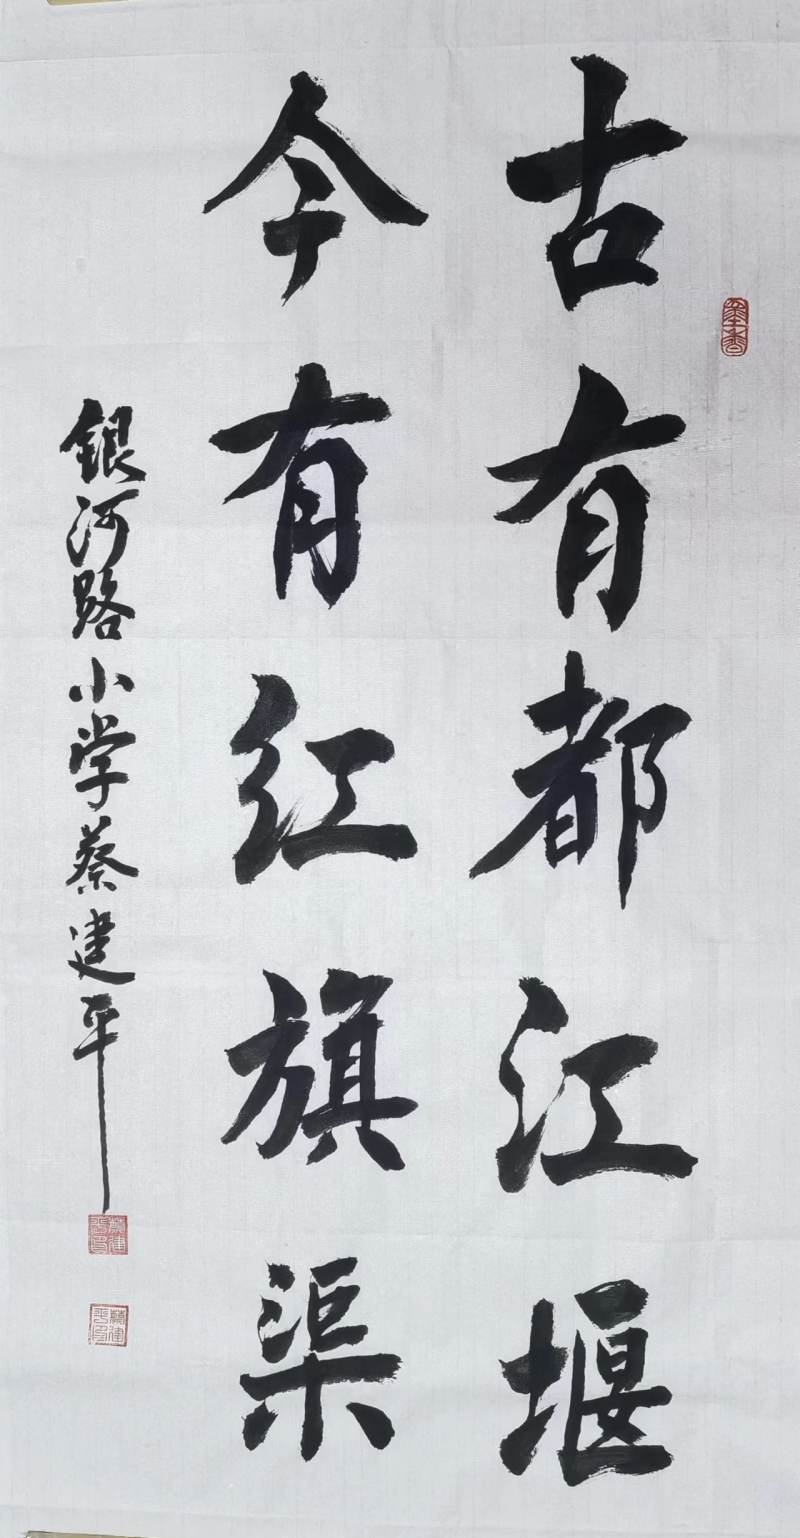 古有都江堰
今有红旗渠
银河路小学蔡建平